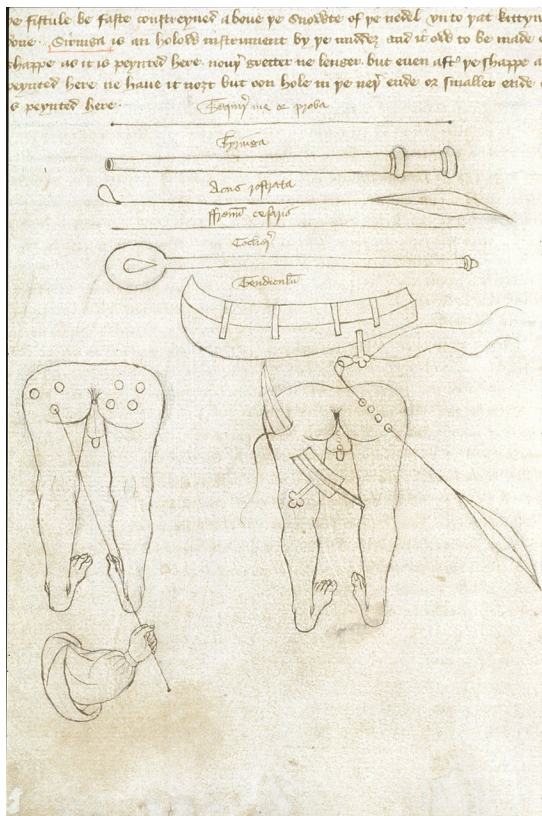 þe fistule be faste constreyned aboue þe snowte of þe nedel vn to þat kittyn
done · Siringa is an holow instrument by þe middez and it ow to be made o
shappe as it is peynted here nouþ gretter ne lenger but euen aft' þe shappe a
peynted here ne haue it noȝt but oon hole in þe neþ' ende or smaller ende
s peynted here ·
Sequer' me or proba
Syringa
Acus rostrata
ffrenū cesaris
Coclear
Tendiculū